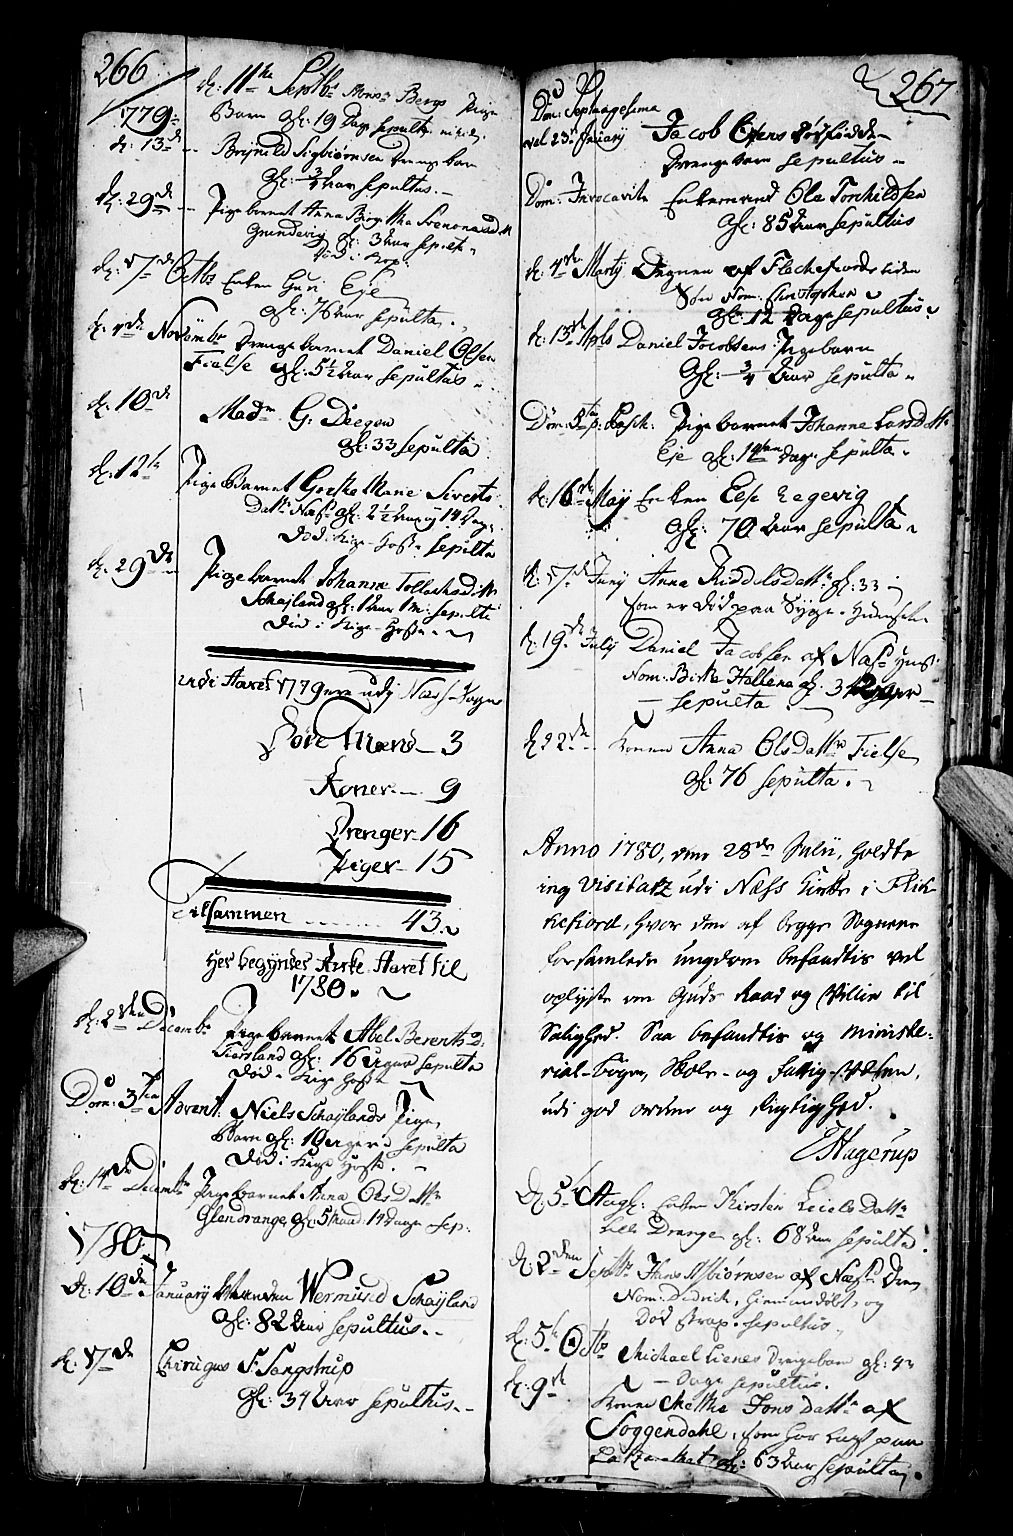 266
1779
d: 11te Septbr Mons: Bergs Pige
Barn gl: 19 Dage sepulta
d: 13de Brynild Sigbiørnsen Drenge barn
gl: 3/4 Aar sepultus.
d: 29de Pige barnet Anna Birgitha
gl: 3 Aar sepult
d: 17de Octbr Enken Guri Eje
gl: 76 Aar sepulta.
d: 7de Novembr Drenge barnet Daniel Olsen
Fielse gl: 5 1/2 Aar sepultus
d: 10de Madm G: Deegen
gl: 33 sepulta
d: 12te Pige Barnet Marie Siverts
Datt: Næss gl: 2 1/2 Aar 14 Dag:
Død i Kige-Hoste sepulta
d: 29de Pige barnet Johanne Tollachsd:
Schajland gl: 1 Aar 1 m: sepulta
Død i Kige-Hoste
udi Aaret 1779 ere udj Næss-Sogn
Døde Mænd 3
Koner 9
Drenger 16
Piger 15
Tilsammen 43
Her begyndes Kirke Aaret til
1780
d: 2den Decembr Pige barnet Abel Berents D:
Fiersland gl: 16 Uger sepulta
Død Kige Hoste
Dom: 3tia Advent: Niels Schajlands Pige
Barn gl: 10 Uger sepulta
Død i Kige Hoste.
d: 14de Decembr Pige barnet Anna Olsdattr
Glendrange gl: 5 Maand 14 Dage sep:
1780
d: 10de January Wermund Schajland
gl: 82 Aar sepultus.
d: 17de Chirugus S: Sangstrup
gl: 34 Aar sepultus.
267
Dom: Septuagesima
vel 23de January Jacob
Drenge barn sepultus
Dom: Invocavit Enkemand Ole Torchildsen
gl: 85 Aar sepultus
d: 4de Martij Degnen af Fleckefiords liden
Søn Nom: Christopher
gl: 12 Dage sepultus
d: 13de Aprls Daniel Jacobsens Pigebarn
gl: 3/4 Aar sepulta
Dom: p: Pasch: Pige barnet Johanne Larsdattr
Eje gl: 14 Dage sepulta
d: 16de Maij Enken Else
gl: 70 Aar sepulta
d: 17de Junij Anna gl: 33
som er død paa Syge-
d: 19de Julij Daniel Jacobsen af Næss
Nom: gl: 3
sepulta
d: 22de Konen Anna Olsdattr Fielse
gl: 76 sepulta.
Anno 1780, den 28de Julii, holdte
ieg Visitatz udi Næss Kirke i Flek-
kefiord, hvor den af begge Sognene
forsamlede ungdom befandtis vel
oplyste om Guds Raad og Villie til
Salighed. Saa befandtis og Ministe-
rial-Bogen, Skole- og fattig-Væsen,
udi god orden og Rigtighed.
E Hagerup
d: 5te Augst: Enken Kirsten Leiels Datter
Lille Drange gl: 68 Aar sepulta.
d: 2den Septbr Hans Asbiørnsen af Næss Dreng
Nom: Didrich, hiemmedøbt, og
Død strax. sepultus
d: 5te Octbr Michael Lienes Drengebarn gl:
Dage sepultus.
d: 9de Konen Mettha Jons dattr af
Soggendahl, som har lagt paa
gl: 63 Aar sepulta